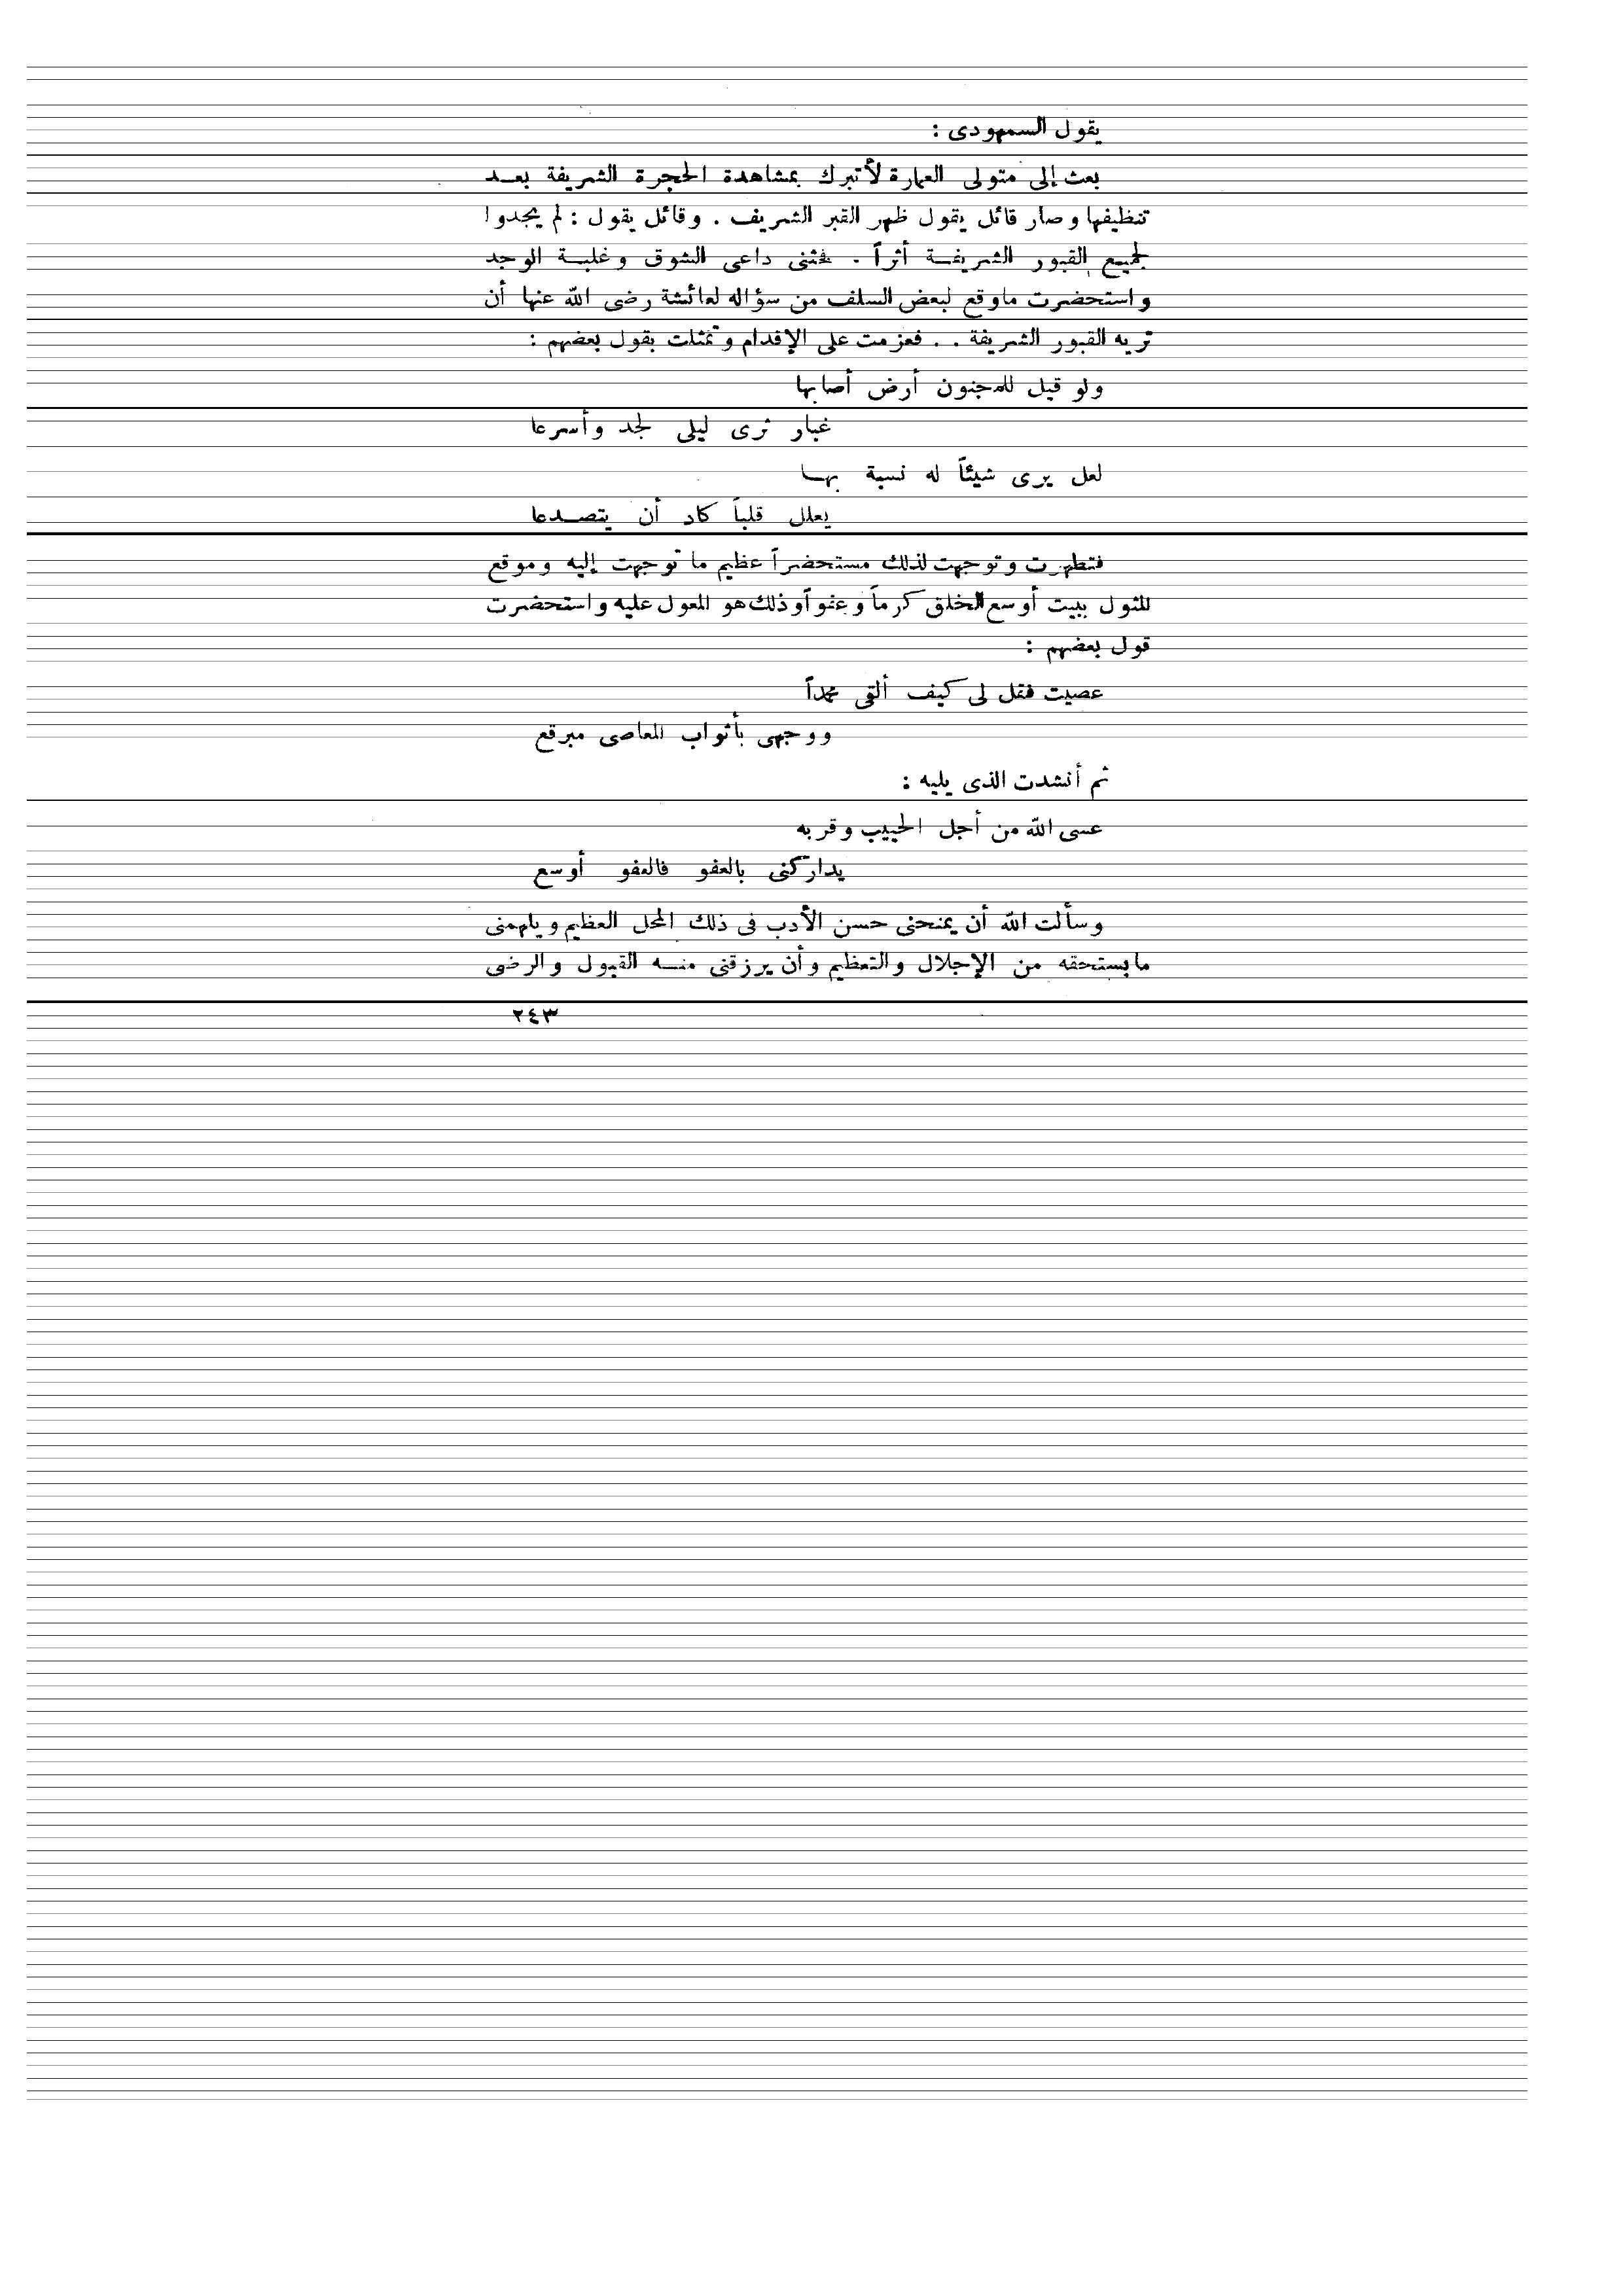 يقول السمهودى :
بعث إلى متولى العمارة لأتبرك بمشاهدة الحجرة الشريفة بعـد
تنظيفها وصار قائل يقول ظهر القبر الشريف . وقائل يقول : لم يجدوا
لجميع القبور الشريفـة أثراً . فحثنى داعى الشوق وغلبـة الوجد
واستحضرت ماوقع لبعض السلف من سؤاله لعائشة رضى الله عنها أن
تريه القبور الشريفة . . فعزمت على الإقدام وتمثلت بقول بعضهم :
ولو قيل للمجنون أرض أصابها
غبار ثرى ليلى لجد وأسرعا
لعل يرى شيئاً له نسبة بهـا
يعلل قلباً كاد أن يتصـدعا
فتطهرت وتوجهت لذلك مستحضراً عظيم ما توجهت إليه وموقع
المثول ببيت أوسع الخلق كرماً وعفواً وذلك هو المعول عليه واستحضرت
قول بعضهم :
عصيت فقل لى كيف ألقى محمداً
ووجهى بأثواب المعاصى مبرقع
ثم أنشدت الذى يليه :
عسى الله من أجل الحبيب وقربه
يداركنى بالعفو فالعفو أوسع
وسألت الله أن يمنحنى حسن الأدب فى ذلك المحل العظيم ويلهمنى
مايستحقه من الإجلال والتعظيم وأن يرزقنى منـه القبول والرضى
٢٤٣